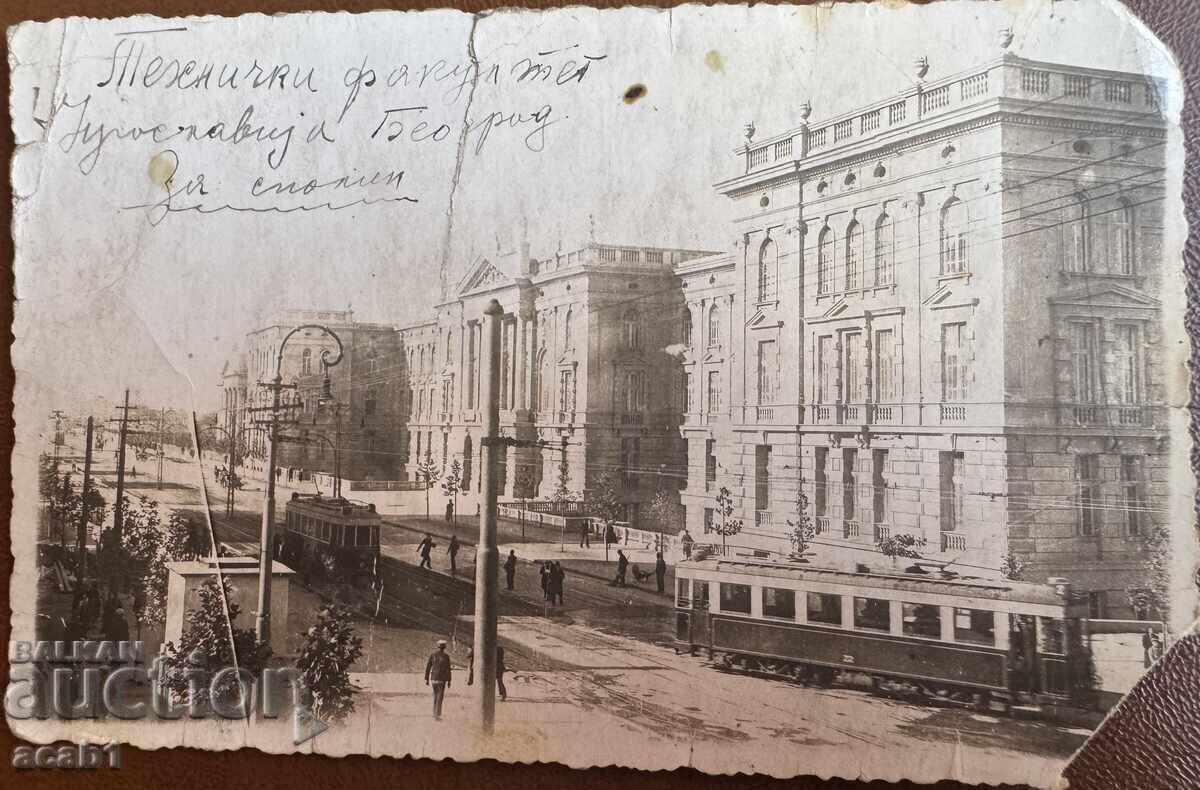 Технички факултет
Југославија Београд.
За спомен
22
BALKAN
auction
acab1